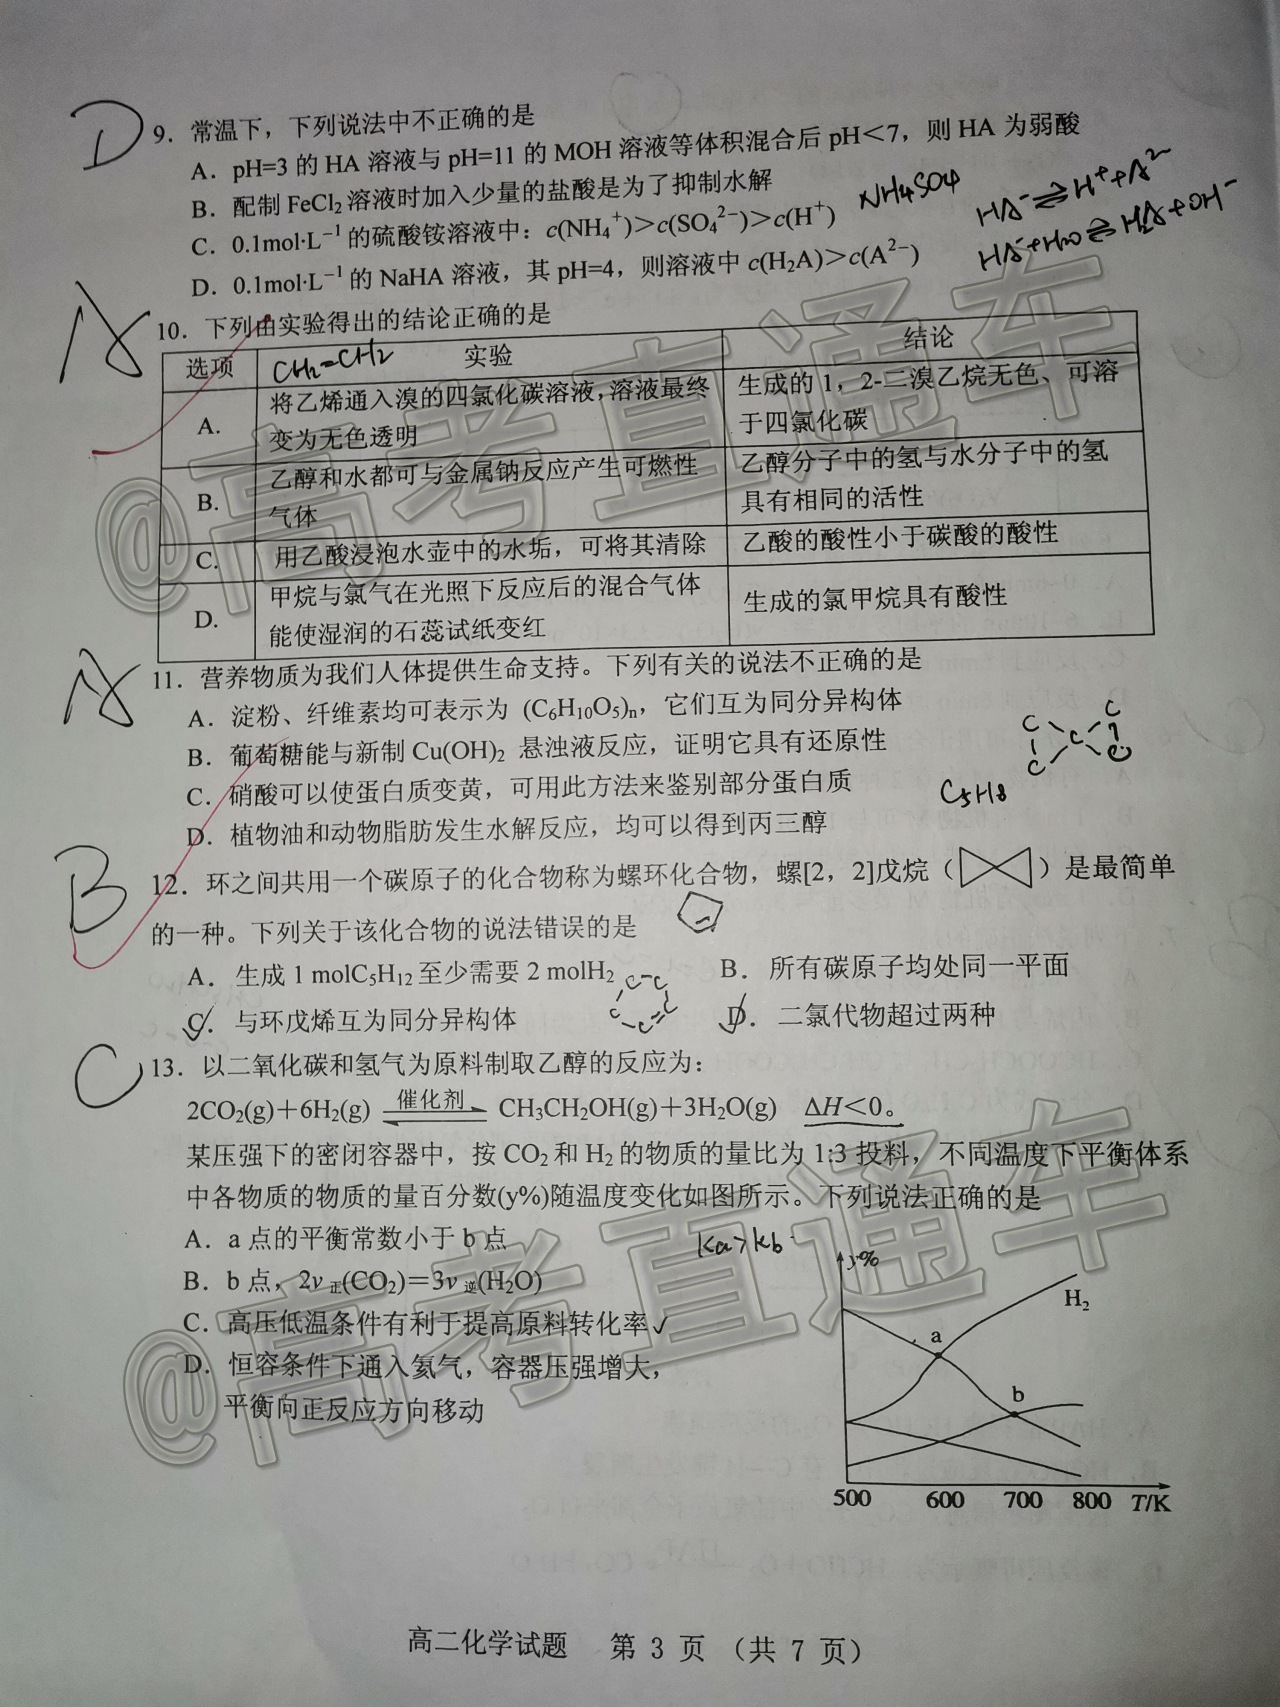 D
9．常温下，下列说法中不正确的是
A．pH=3 的 HA 溶液与 pH=11 的 MOH 溶液等体积混合后 pH＜7，则 HA 为弱酸
B．配制 FeCl₂ 溶液时加入少量的盐酸是为了抑制水解
NH4SO4
HA⁻⇌H⁺+A²⁻
C．0.1mol·L⁻¹ 的硫酸铵溶液中：c(NH₄⁺)>c(SO₄²⁻)>c(H⁺)
HA⁻+H₂O⇌H₂A+OH⁻
D．0.1mol·L⁻¹ 的 NaHA 溶液，其 pH=4，则溶液中 c(H₂A)>c(A²⁻)
A
10．下列由实验得出的结论正确的是
选项 实验 结论
CH₂=CH₂
A. 将乙烯通入溴的四氯化碳溶液，溶液最终 生成的 1，2-二溴乙烷无色、可溶
变为无色透明 于四氯化碳
B. 乙醇和水都可与金属钠反应产生可燃性 乙醇分子中的氢与水分子中的氢
气体 具有相同的活性
C. 用乙酸浸泡水壶中的水垢，可将其清除 乙酸的酸性小于碳酸的酸性
D. 甲烷与氯气在光照下反应后的混合气体 生成的氯甲烷具有酸性
能使湿润的石蕊试纸变红
A
11．营养物质为我们人体提供生命支持。下列有关的说法不正确的是
A．淀粉、纤维素均可表示为 (C₆H₁₀O₅)ₙ，它们互为同分异构体
B．葡萄糖能与新制 Cu(OH)₂ 悬浊液反应，证明它具有还原性
C．硝酸可以使蛋白质变黄，可用此方法来鉴别部分蛋白质
C₅H₈
C C C C C
D．植物油和动物脂肪发生水解反应，均可以得到丙三醇
B
12．环之间共用一个碳原子的化合物称为螺环化合物，螺[2，2]戊烷（ ）是最简单
的一种。下列关于该化合物的说法错误的是
A．生成 1 molC₅H₁₂ 至少需要 2 molH₂ B．所有碳原子均处同一平面
C C C C C
C．与环戊烯互为同分异构体 D．二氯代物超过两种
C
13．以二氧化碳和氢气为原料制取乙醇的反应为：
2CO₂(g)＋6H₂(g) 催化剂 CH₃CH₂OH(g)＋3H₂O(g) ΔH＜0。
某压强下的密闭容器中，按 CO₂ 和 H₂ 的物质的量比为 1:3 投料，不同温度下平衡体系
中各物质的物质的量百分数(y%)随温度变化如图所示。下列说法正确的是
A．a 点的平衡常数小于 b 点
Ka>Kb
B．b 点，2v正(CO₂)＝3v逆(H₂O)
C．高压低温条件有利于提高原料转化率✓
D．恒容条件下通入氦气，容器压强增大，
平衡向正反应方向移动
y%
H₂
a
b
500 600 700 800 T/K
@高考直通车
@高考直通车
高二化学试题 第 3 页 （共 7 页）